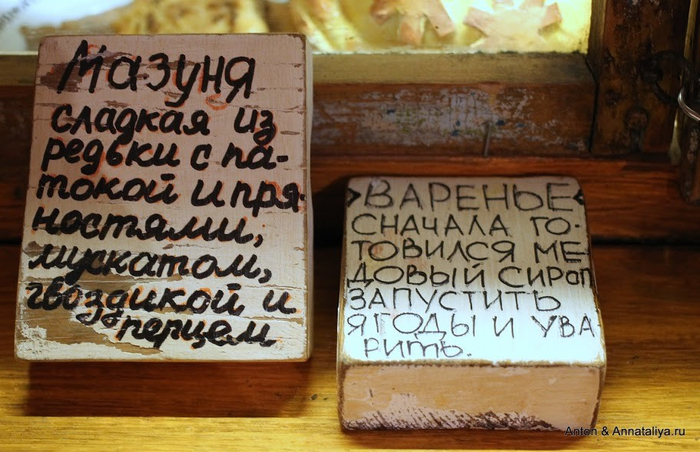 Мазуня
сладкая из
редьки с па-
токой и пря-
ностями,
мускатом,
гвоздикой и
перцем
>ВАРЕНЬЕ<
СНАЧАЛА ГО-
ТОВИЛСЯ МЕ-
ДОВЫЙ СИРОП
ЗАПУСТИТЬ
ЯГОДЫ И УВА
РИТЬ.
Anton & Annataliya.ru